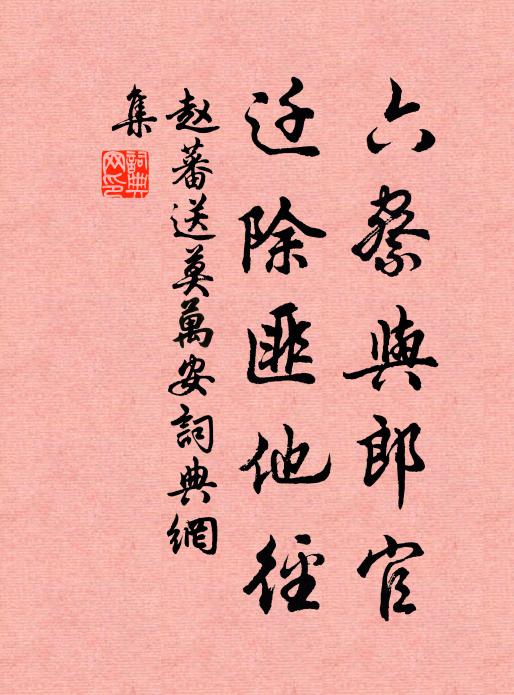 六察與郎官
迁除匪他徑
赵蕃送莫萬安詞典網
集
詞典网印